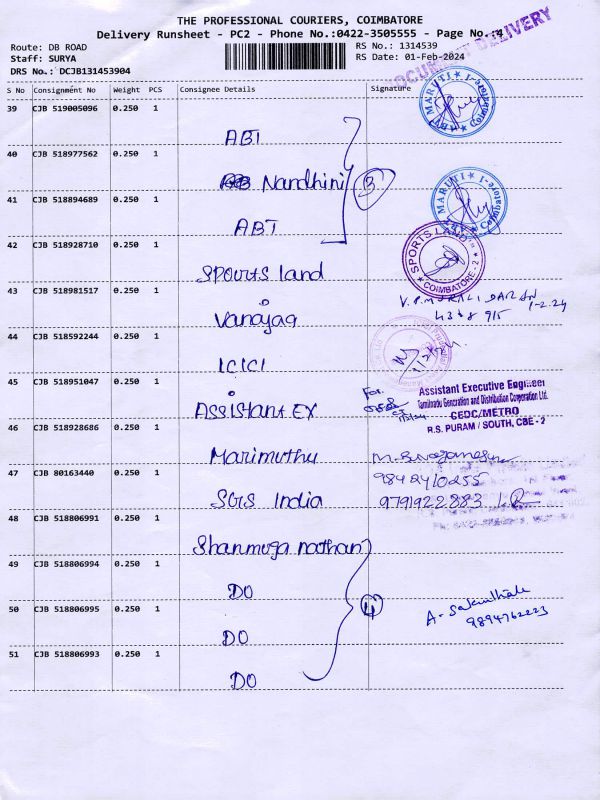 THE PROFESSIONAL COURIERS, COIMBATORE
Delivery Runsheet - PC2 - Phone No.:0422-3505555 - Page No.:4
DOCUMENT DELIVERY
Route: DB ROAD
RS No.: 1314539
Staff: SURYA
RS Date: 01-Feb-2024
DRS No.: DCJB131453904
S No Consignment No Weight PCS Consignee Details Signature
39 CJB 519005096 0.250 1
ABT
MARUTI
Coimbatore-1
40 CJB 518977562 0.250 1
Nandhini
3
41 CJB 518894689 0.250 1
ABT
MARUTI
ABT
Coimbatore-1
42 CJB 518928710 0.250 1
Spourts land
SPORTS LAND
COIMBATORE - 2
43 CJB 518981517 0.250 1
Vanayag
V.P. MURALIDARAN
1-2-24
44 CJB 518592244 0.250 1
ICICI
45 CJB 518951047 0.250 1
Assistant EX
For
Assistant Executive Engineer
Tamilnadu Generation and Distribution Corporation Ltd.
GEDC/METRO
R.S. PURAM / SOUTH, CBE - 2
46 CJB 518928686 0.250 1
Marimuthu
9842410255
47 CJB 80163440 0.250 1
SGS India
9791922883
48 CJB 518806991 0.250 1
Shanmuga nathan
49 CJB 518806994 0.250 1
DO
4
50 CJB 518806995 0.250 1
DO
A- Sakunthala
9894762223
51 CJB 518806993 0.250 1
DO